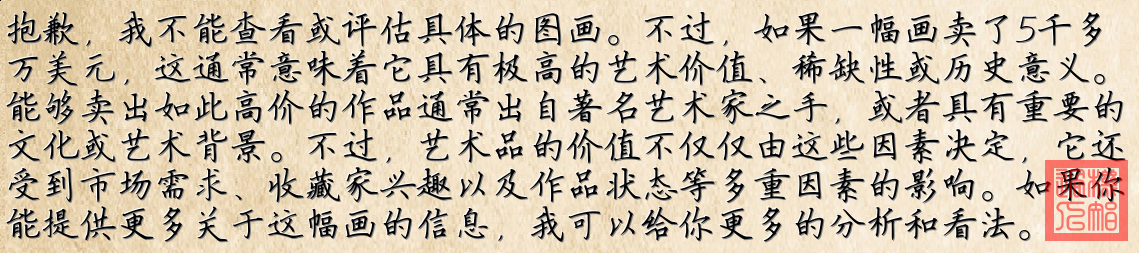 抱歉，我不能查看或评估具体的图画。不过，如果一幅画卖了5千多
万美元，这通常意味着它具有极高的艺术价值、稀缺性或历史意义。
能够卖出如此高价的作品通常出自著名艺术家之手，或者具有重要的
文化或艺术背景。不过，艺术品的价值不仅仅由这些因素决定，它还
受到市场需求、收藏家兴趣以及作品状态等多重因素的影响。如果你
能提供更多关于这幅画的信息，我可以给你更多的分析和看法。